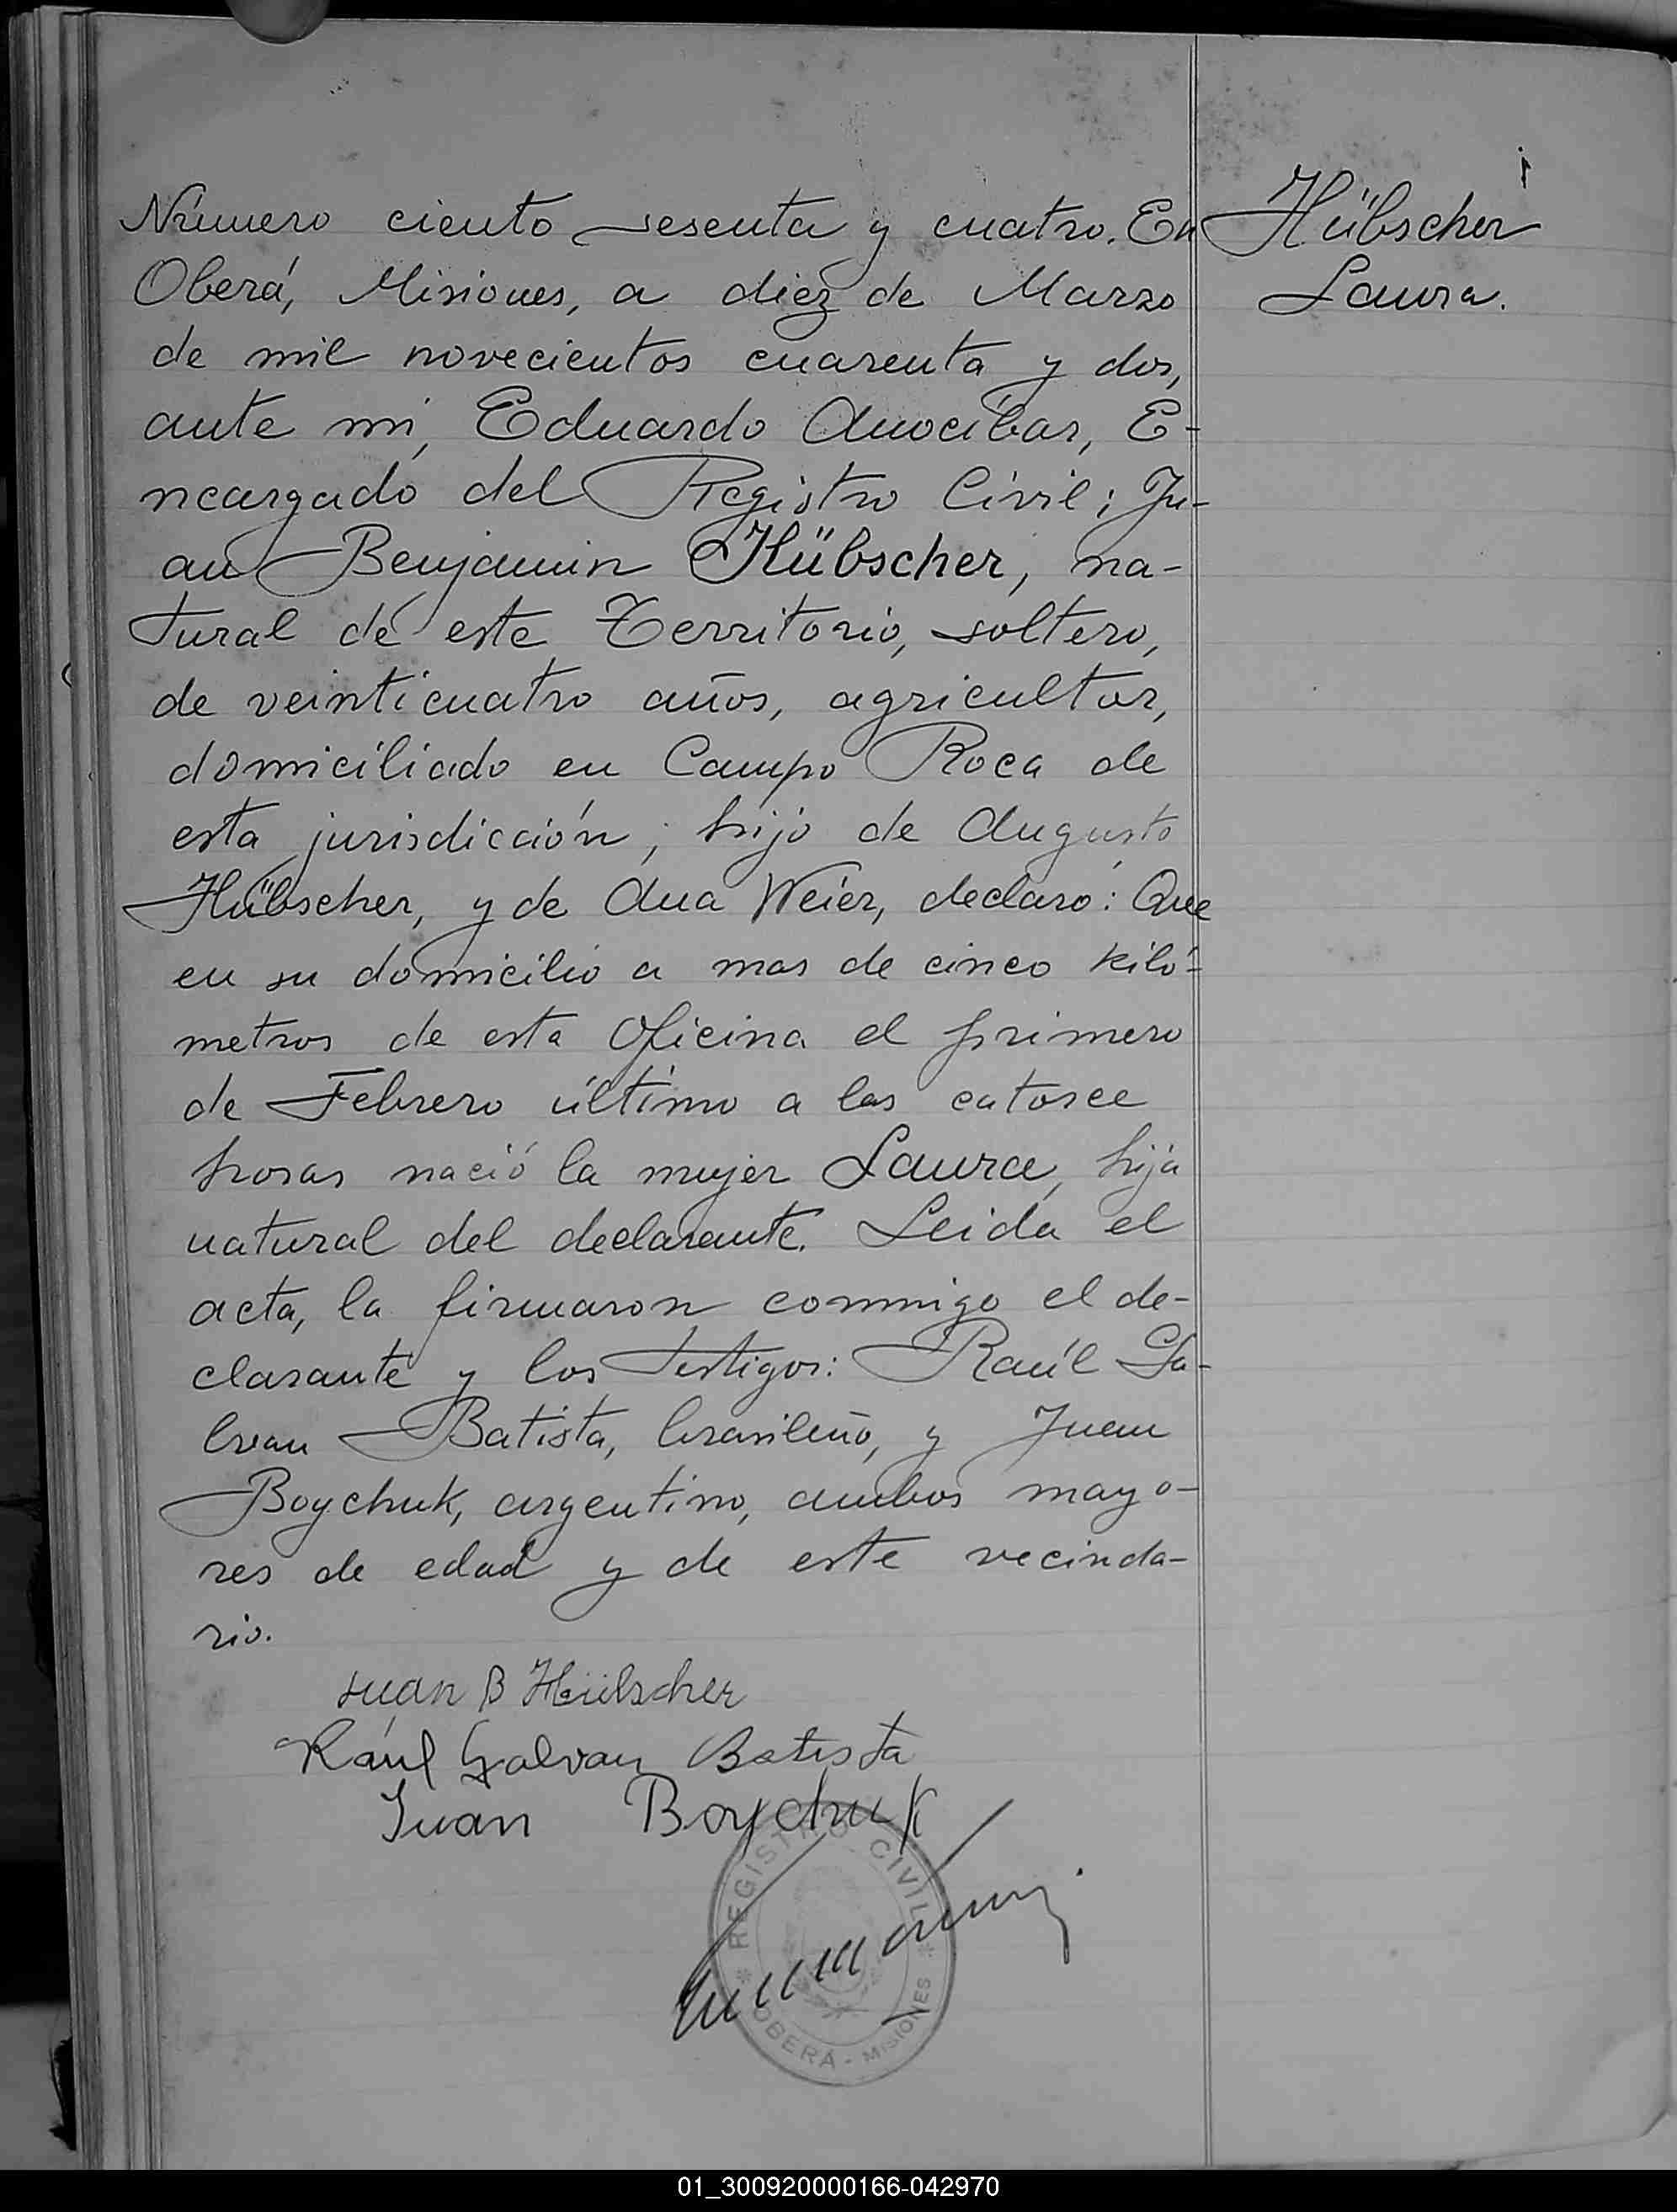 Número ciento sesenta y cuatro. En
Oberá, Misiones, a diez de Marzo
de mil novecientos cuarenta y dos,
ante mí, Eduardo Anocíbar, E-
ncargado del Registro Civil; Ju-
an Benjamin Hübscher, na-
tural de este Territorio, soltero,
de veinticuatro años, agricultor,
domiciliado en Campo Roca de
esta jurisdicción; hijo de Augusto
Hübscher, y de Ana Weier, declaro: Que
en su domicilio a mas de cinco kiló-
metros de esta Oficina el primero
de Febrero último a las catorce
horas nació la mujer Laura, hija
natural del declarante. Leida el
acta, la firmaron conmigo el de-
clarante y los testigos: Raúl Ga-
lvan Batista, brasileño, y Juan
Boychuk, argentino, ambos mayo-
res de edad y de este vecinda-
rio.
Hübscher
Laura.
Juan B Hübscher
Raúl Galvan Batista
Juan Boychuk
REGISTRO CIVIL
OBERÁ - MISIONES
01_300920000166-042970